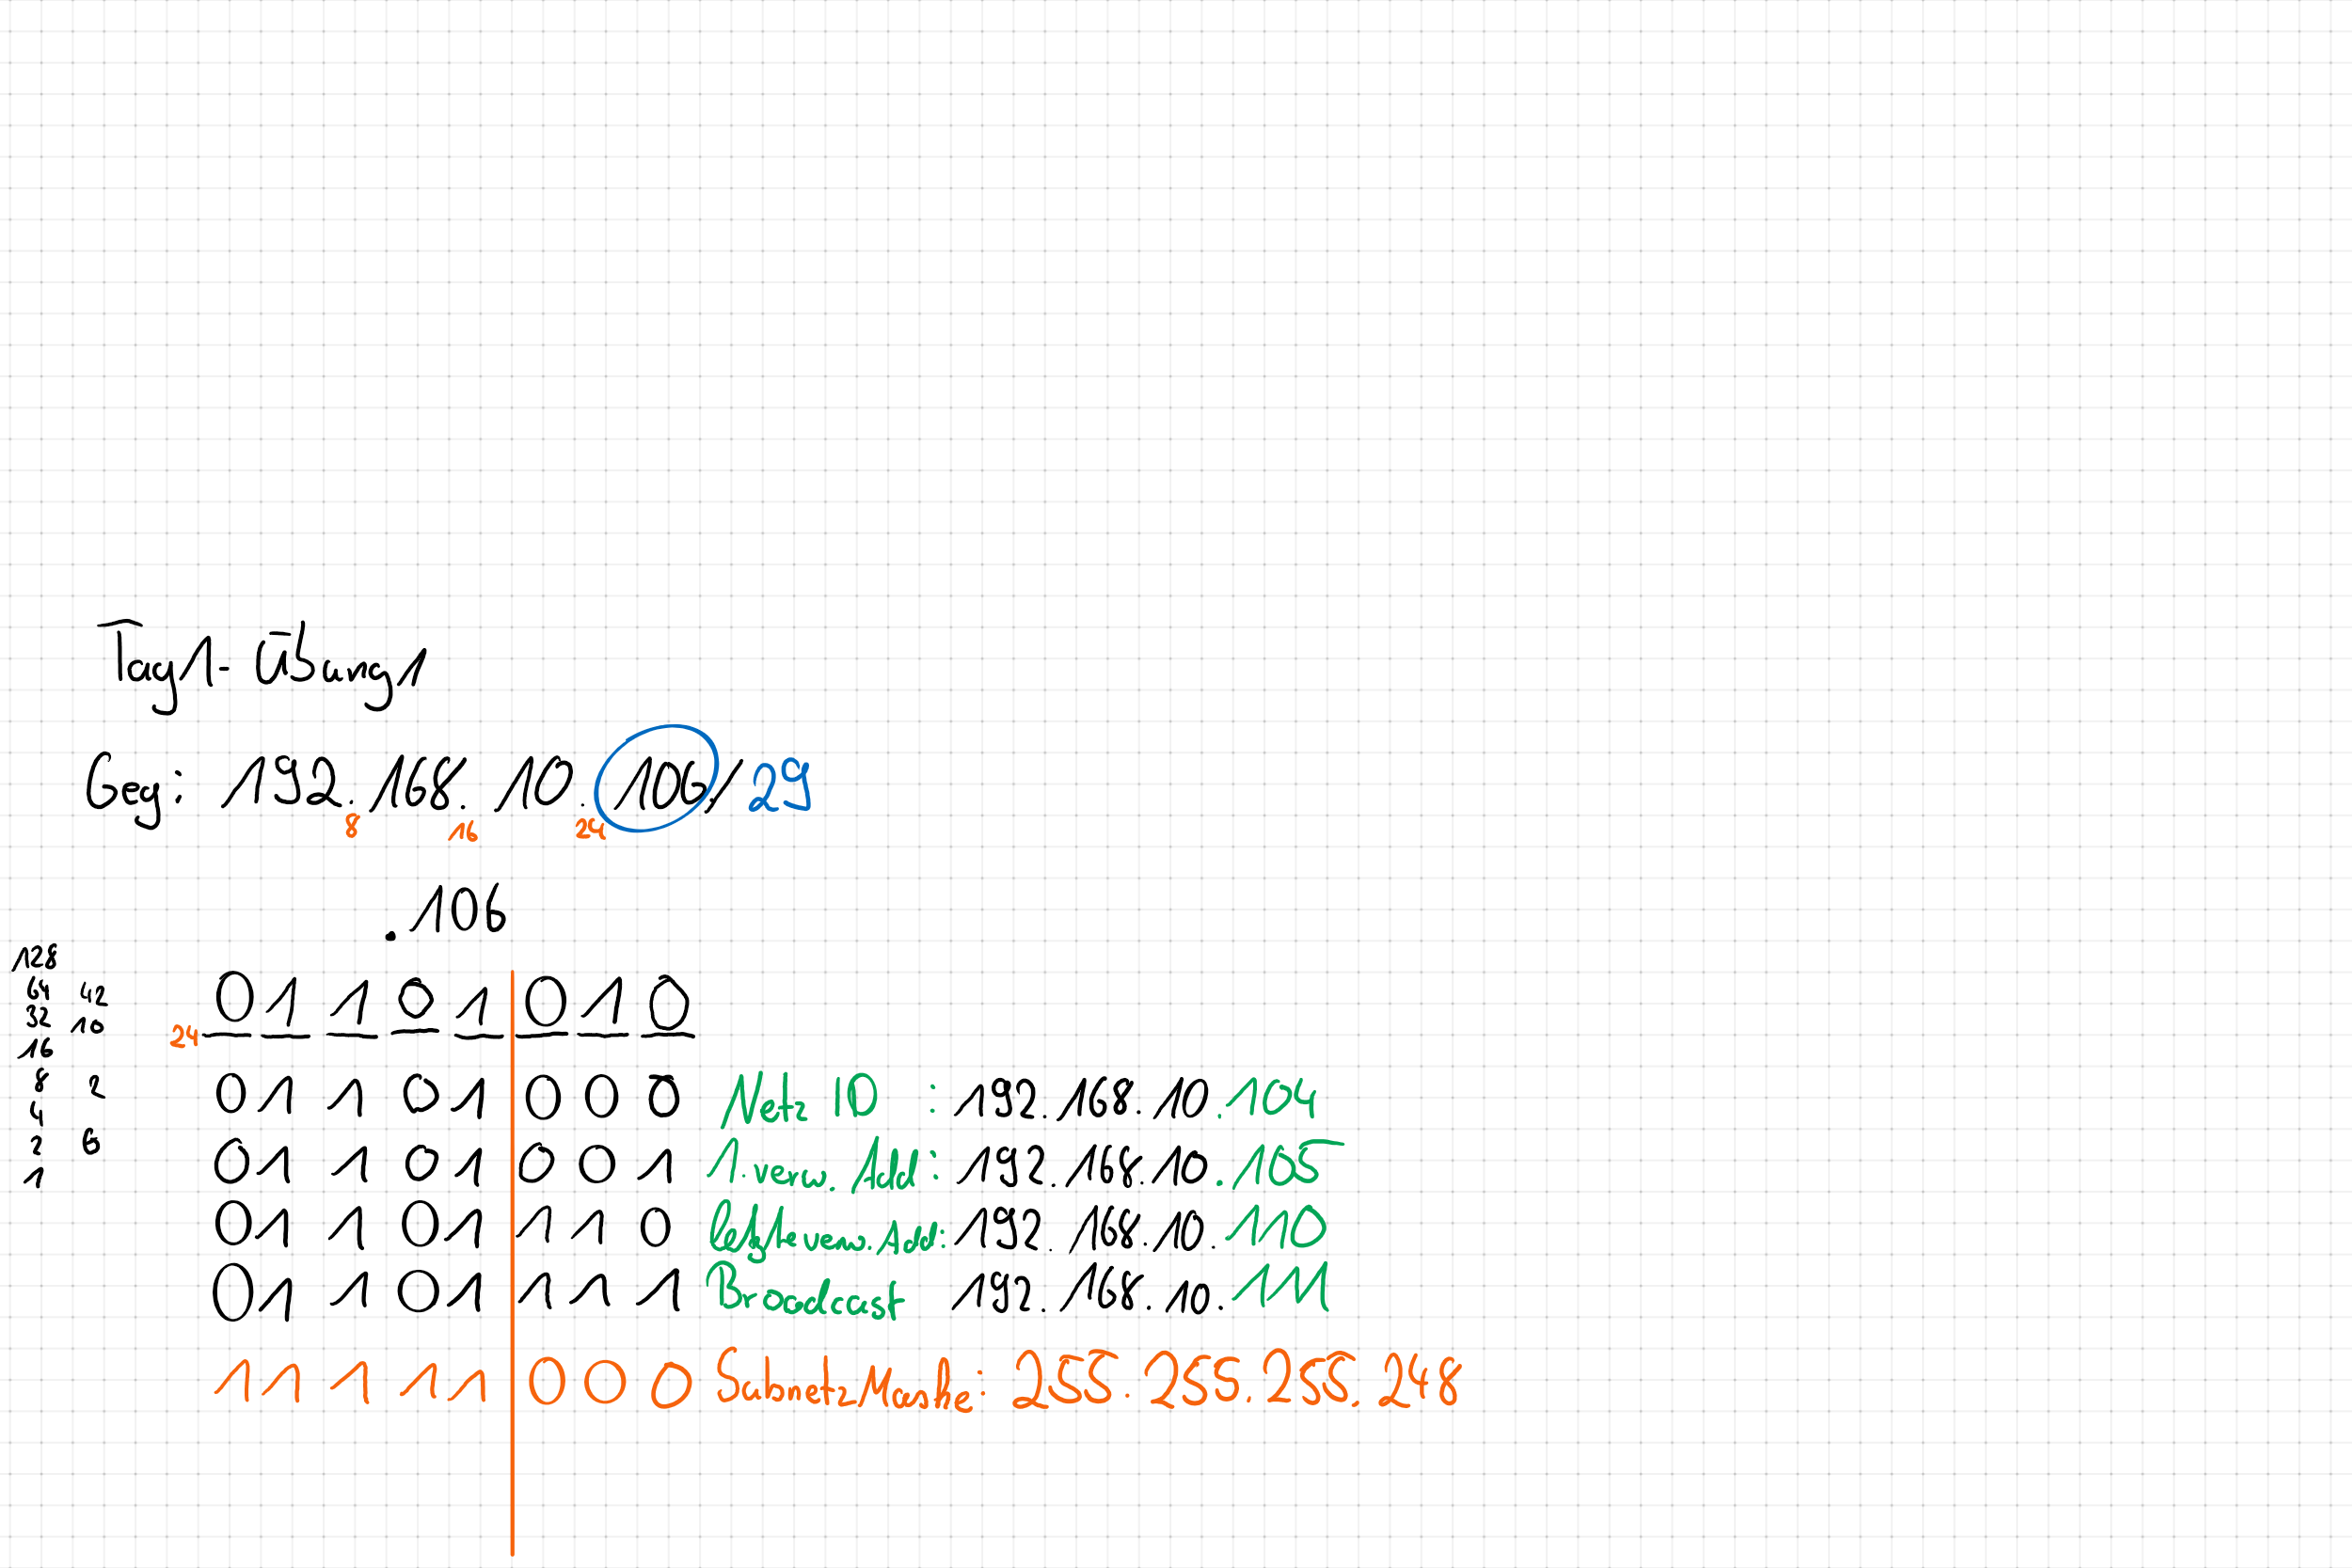 Tag1-Übung1
Geg: 192.168.10.106/29
8 16 24
.106
128
64 42
32 10
16
8 2
4
2 0
1
24 0 1 1 0 1 0 1 0
0 1 1 0 1 0 0 0 Netz ID : 192.168.10.104
0 1 1 0 1 0 0 1 1. verw. Add: 192.168.10.105
0 1 1 0 1 1 1 0 letzte verw. Add: 192.168.10.110
0 1 1 0 1 1 1 1 Broadcast 192.168.10.111
1 1 1 1 1 0 0 0 Subnetz Maske: 255.255.255.248